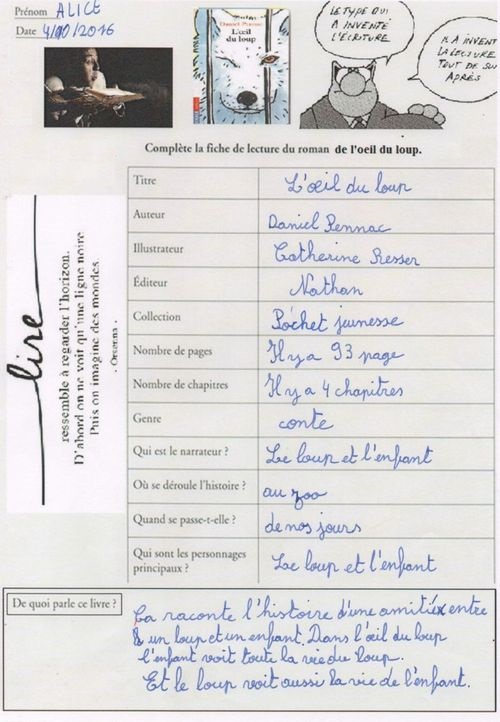 Prénom ALICE
Date 4/10/2016
Daniel Pennac
L'œil
du loup
LE TYPE QUI
A INVENTÉ
L'ÉCRITURE
IL A INVENT
LA LECTURE
TOUT DE SUI
APRÈS
Complète la fiche de lecture du roman de l'oeil du loup.
Titre L'œil du loup
Auteur Daniel Pennac
Illustrateur Catherine Resser
Éditeur Nathan
Collection Pochet jeunesse
Nombre de pages Il y a 93 page
Nombre de chapitres Il y a 4 chapitres
Genre conte
Qui est le narrateur ? Le loup et l'enfant
Où se déroule l'histoire ? au zoo
Quand se passe-t-elle ? de nos jours
Qui sont les personnages
principaux ? Le loup et l'enfant
lire
ressemble à regarder l'horizon.
D'abord on ne voit qu'une ligne noire
Puis on imagine des mondes.
De quoi parle ce livre ?
Ça raconte l'histoire d'une amitié entre
un loup et un enfant. Dans l'œil du loup
l'enfant voit toute la vie du loup.
Et le loup voit aussi la vie de l'enfant.